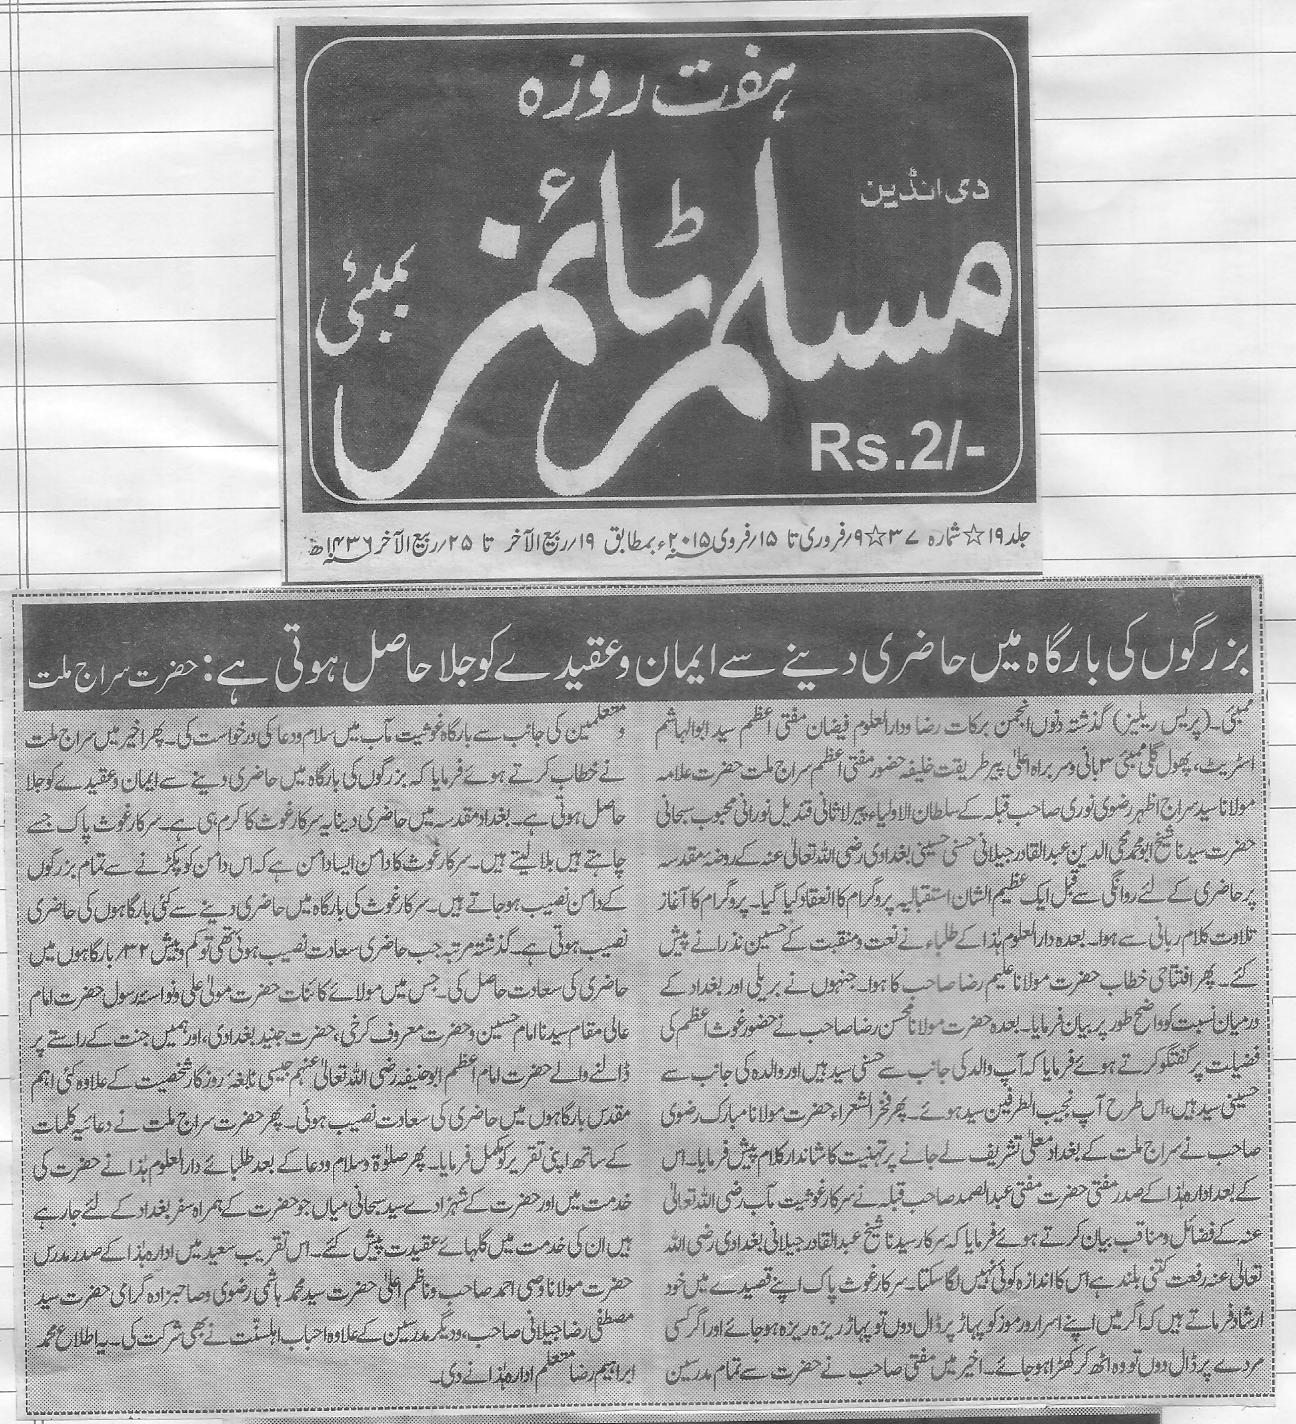 ہفت روزہ
دی انڈین
مسلم ٹائمز
بمبئی
Rs.2/-
جلد ۱۹☆شمارہ ۳۷☆۹؍فروری تا ۱۵؍فروی ۲۰۱۵ء بمطابق ۱۹؍ربیع الآخر تا ۲۵؍ربیع الآخر ۱۴۳۶ھ
بزرگوں کی بارگاہ میں حاضری دینے سے ایمان و عقیدے کو جلا حاصل ہوتی ہے: حضرت سراج ملت
ممبئی۔(پریس ریلیز) گذشتہ دنوں انجمن برکات رضا و دارالعلوم فیضان مفتی اعظم سید ابوالہاشم
اسٹریٹ، پھول گلی ممبئی ۳ بانی و سربراہ اعلیٰ پیر طریقت خلیفہ حضور مفتی اعظم سراج ملت حضرت علامہ
مولانا سید سراج اظہر رضوی نوری صاحب قبلہ کے سلطان الاولیاء پیر لاثانی قندیل نورانی محبوب سبحانی
حضرت سیدنا شیخ ابو محمد محی الدین عبدالقادر جیلانی حسنی حسینی بغدادی رضی اللہ تعالیٰ عنہ کے روضۂ مقدسہ
پر حاضری کے لئے روانگی سے قبل ایک عظیم الشان استقبالیہ پروگرام کا انعقاد کیا گیا۔ پروگرام کا آغاز
تلاوت کلام ربانی سے ہوا۔ بعدہ دارالعلوم ہٰذا کے طلباء نے نعت و منقبت کے حسین نذرانے پیش
کئے۔ پھر افتتاحی خطاب حضرت مولانا علیم رضا صاحب کا ہوا۔ جنہوں نے بریلی اور بغداد کے
درمیان نسبت کو واضح طور پر بیان فرمایا۔ بعدہ حضرت مولانا محسن رضا صاحب نے حضور غوث اعظم کی
فضیلت پر گفتگو کرتے ہوئے فرمایا کہ آپ والد کی جانب سے حسنی سید ہیں اور والدہ کی جانب سے
حسینی سید ہیں، اس طرح آپ نجیب الطرفین سید ہوئے۔ پھر فخر الشعراء حضرت مولانا مبارک رضوی
صاحب نے سراج ملت کے بغداد معلیٰ تشریف لے جانے پر تہنیت کا شاندار کلام پیش فرمایا۔ اس
کے بعد ادارہ ہٰذا کے صدر مفتی حضرت مفتی عبدالصمد صاحب قبلہ نے سرکار غوثیت مآب رضی اللہ تعالیٰ
عنہ کے فضائل و مناقب بیان کرتے ہوئے فرمایا کہ سرکار سیدنا شیخ عبدالقادر جیلانی بغدادی رضی اللہ
تعالیٰ عنہ رفعت کتنی بلند ہے اس کا اندازہ کوئی نہیں لگا سکتا۔ سرکار غوث پاک اپنے قصیدے میں خود
ارشاد فرماتے ہیں کہ اگر میں اپنے اسرار و رموز کو پہاڑ پر ڈال دوں تو پہاڑ ریزہ ریزہ ہو جائے اور اگر کسی
مردے پر ڈال دوں تو وہ اٹھ کر کھڑا ہو جائے۔ اخیر میں مفتی صاحب نے حضرت سے تمام مدرسین
و متعلمین کی جانب سے بارگاہ غوثیت مآب میں سلام و دعا کی درخواست کی۔ پھر اخیر میں سراج ملت
نے خطاب کرتے ہوئے فرمایا کہ بزرگوں کی بارگاہ میں حاضری دینے سے ایمان و عقیدے کو جلا
حاصل ہوتی ہے۔ بغداد مقدسہ میں حاضری دینا یہ سرکار غوث کا کرم ہی ہے۔ سرکار غوث پاک جسے
چاہتے ہیں بلا لیتے ہیں۔ سرکار غوث کا دامن ایسا دامن ہے کہ اس دامن کو پکڑنے سے تمام بزرگوں
کے دامن نصیب ہو جاتے ہیں۔ سرکار غوث کی بارگاہ میں حاضری دینے سے کئی بارگاہوں کی حاضری
نصیب ہوتی ہے۔ گذشتہ مرتبہ جب حاضری سعادت نصیب ہوئی تھی تو کم و بیش ۳۲؍بارگاہوں میں
حاضری کی سعادت حاصل کی۔ جس میں مولائے کائنات حضرت مولیٰ علی و نواسۂ رسول حضرت امام
عالی مقام سیدنا امام حسین و حضرت معروف کرخی، حضرت جنید بغدادی، اور ہمیں جنت کے راستے پر
ڈالنے والے حضرت امام اعظم ابو حنیفہ رضی اللہ تعالیٰ عنہم جیسی نابغۂ روزگار شخصیت کے علاوہ کئی اہم
مقدس بارگاہوں میں حاضری کی سعادت نصیب ہوئی۔ پھر حضرت سراج ملت نے دعائیہ کلمات
کے ساتھ اپنی تقریر کو مکمل فرمایا۔ پھر صلوٰۃ و سلام و دعا کے بعد طلبائے دارالعلوم ہٰذا نے حضرت کی
خدمت میں اور حضرت کے شہزادے سید سبحانی میاں جو حضرت کے ہمراہ سفر بغداد کے لئے جا رہے
ہیں ان کی خدمت میں گلہائے عقیدت پیش کئے۔ اس تقریب سعید میں ادارہ ہٰذا کے صدر مدرس
حضرت مولانا وصی احمد صاحب و ناظم اعلیٰ حضرت سید محمد ہاشمی رضوی و صاحبزادہ گرامی حضرت سید
مصطفی رضا جیلانی صاحب، و دیگر مدرسین کے علاوہ احباب اہلسنّت نے بھی شرکت کی۔ یہ اطلاع محمد
ابراہیم رضا متعلم ادارہ ہٰذا نے دی۔